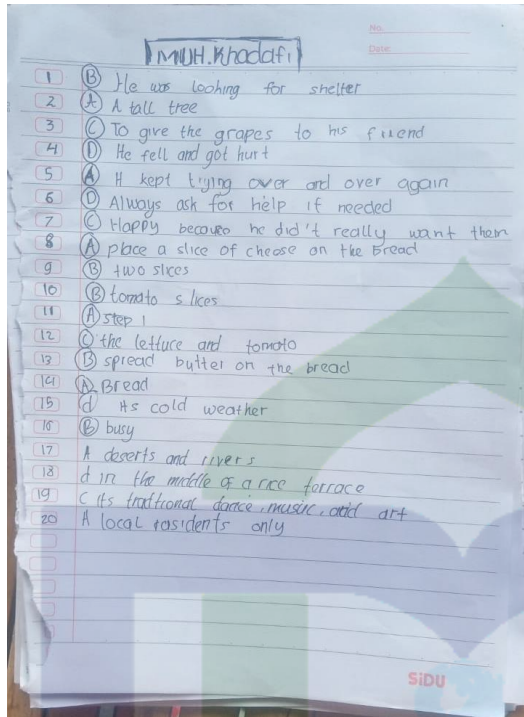 No.
Date:
MUH.Khadafi
1 B He was looking for shelter
2 A A tall tree
3 C To give the grapes to his friend
4 D He fell and got hurt
5 A H kept trying over and over again
6 D Always ask for help if needed
7 C Happy because he did't really want them
8 A place a slice of cheose on the Bread
9 B two slices
10 B tomato slices
11 A step 1
12 C the lettuce and tomato
13 B spread butter on the bread
14 A. Bread
15 d Hs cold weather
16 B busy
17 A deserts and rivers
18 d in the middle of a rice terrace
19 C its traditional dance, music, and art
20 A local rasidents only
SiDU